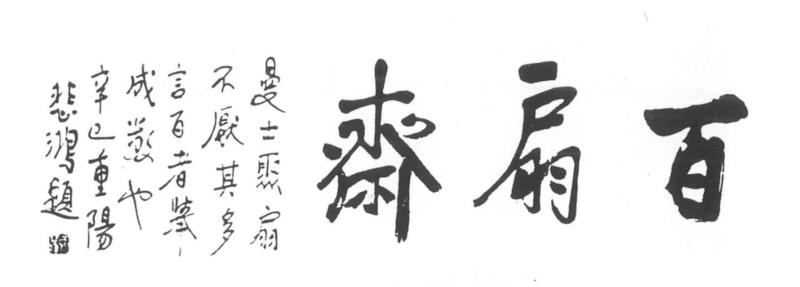 百扇齋
曼士聚扇
不厭其多
言百者舉
成數也
辛巳重陽
悲鴻題